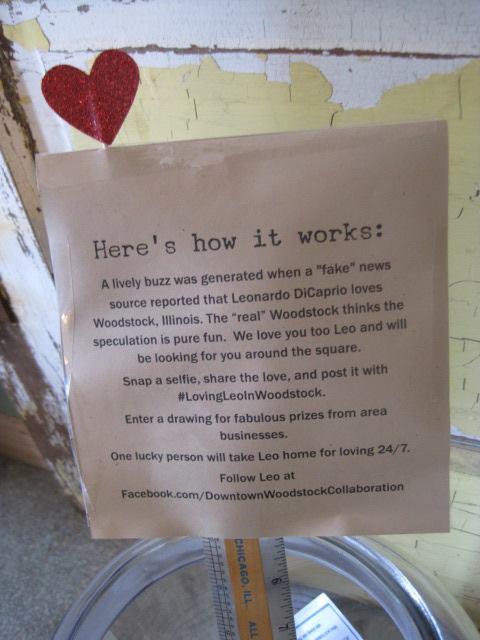 Here's how it works:
A lively buzz was generated when a "fake" news
source reported that Leonardo DiCaprio loves
Woodstock, Illinois. The "real" Woodstock thinks the
speculation is pure fun. We love you too Leo and will
be looking for you around the square.
Snap a selfie, share the love, and post it with
#LovingLeoInWoodstock.
Enter a drawing for fabulous prizes from area
businesses.
One lucky person will take Leo home for loving 24/7.
Follow Leo at
Facebook.com/DowntownWoodstockCollaboration
CHICAGO, ILL. ALL